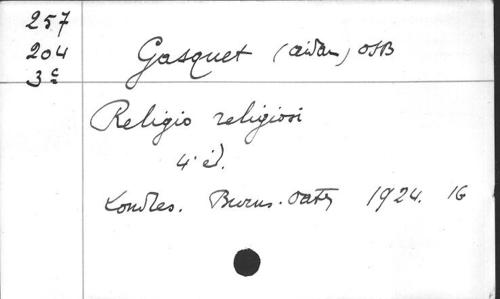 257
204
3c
Gasquet (Aidan) OSB
Religio religiosi
4 éd.
Londres. Burns. Oates 1924. 16